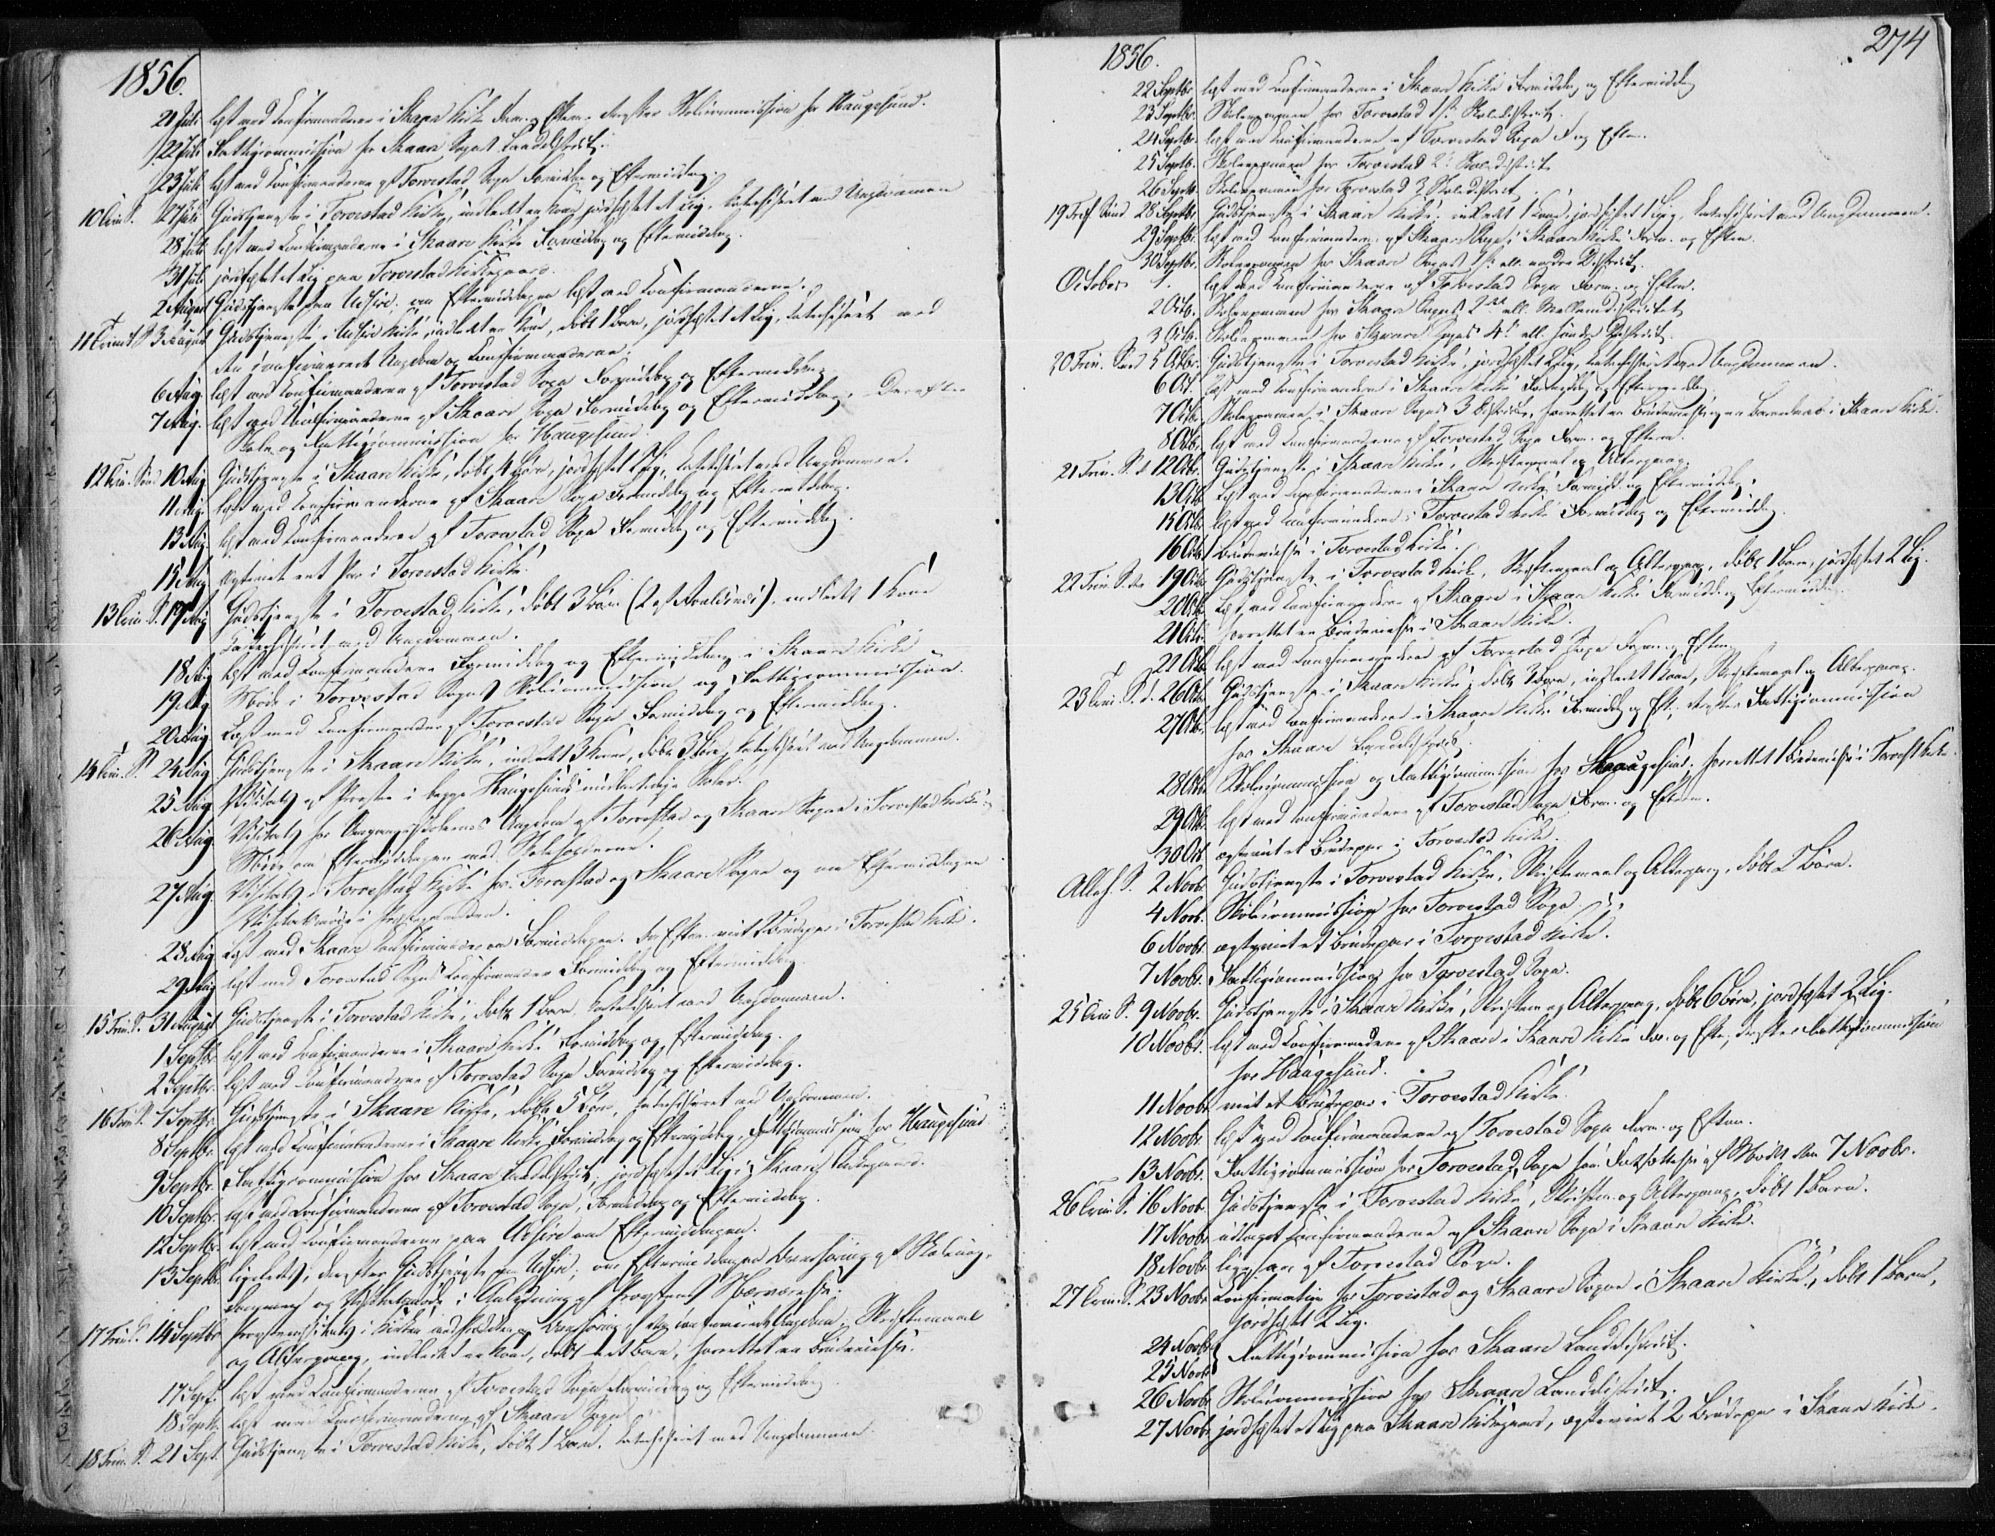 1856.
21 Juli læst med Confirmanderne i Skaare Kirke Form. og Efterm. derefter Skolecommission for Haugesund.
22 Juli Fattigcommission for Skaare Sogns Landdistrict.
23 Juli læst med Confirmanderne af Torvestad Sogn Formiddag og Eftermiddag.
10 Trin. S. 27 Juli Gudstjeneste i Torvestad Kirke, indledt en Kone, jordfæstet et Lig, katechiseret med Ungdommen
28 Juli læst med Confirmanderne i Skaare Kirke Formiddag og Eftermiddag.
31 Juli jordfæstet et Lig paa Torvestad Kirkegaard.
2 August Gudstjeneste paa Udsire, om Eftermiddagen læst med Confirmanderne.
11 Trinit. S. 3 August Gudstjeneste i Udsire Kirke, indledt en Kone, døbt 1 Barn, jordfæstet et Lig, katechiseret med
den confirmerede Ungdom og Confirmanderne.
6 Aug. læst med Confirmanderne af Torvestad Sogn Formiddag og Eftermiddag
7 Aug. læst med Confirmanderne af Skaare Sogn Formiddag og Eftermiddag. Derefter
Skole og Fattigcommission for Haugesund.
12 Trin. Sønd 10 Aug Gudstjeneste i Skaare Kirke, døbt 4 Børn, jordfæstet 1 Lig, katechiseret med Ungdommen.
11 Aug. læst med Confirmanderne af Skaare Sogn Formiddag og Eftermiddag.
13 Aug læst med Confirmanderne af Torvestad Sogn Formiddag og Eftermiddag.
15 Aug. Ægteviet eet Par i Torvestad Kirke.
13 Trin. S. 17 Aug Gudstjeneste i Torvestad Kirke, døbt 3 Børn (2 af Roaldsnæs), indledt 1 Kone
Katechiseret med Ungdommen.
18 Aug læst med Confirmanderne Formiddag og Eftermiddag i Skaare Kirke
19 Aug Møde i Torvestad Sogns Skolecommission og Fattigcommission.
20 Aug. Læst med Confirmander af Torvestad Sogn Formiddag og Eftermiddag.
14 Trin. S. 24 Aug Gudstjeneste i Skaare Kirke, indledt 3 Koner, døbt 3 Børn, katechiseret med Ungdommen.
25 Aug Visitats af Provsten i begge Haugesunds midlertidige Skoler.
26 Aug. Visitats for Omgangsskolernes Ungdom af Torvestad og Skaare Sogne i Torvestad Kirke.
Møde om Eftermiddagen med Skolelærerne.
27 Aug. Visitats i Torvestad Kirke for Torvestad og Skaare Sogne og om Eftermiddagen
Visitatsmøde i Præstegaarden.
28 Aug læst med Skaare Confirmander om Formiddagen. Om Efterm. viet 2 Brudepar i Torvestad Kirke.
29 Aug læst med Torvestad Sogns Confirmander Formiddag og Eftermiddag.
15 Trin. S. 31 August Gudstjeneste i Torvestad Kirke, døbt 1 Barn, katechiseret med Ungdommen.
1 Septbr. læst med Confirmanderne i Skaare Kirke Formiddag og Eftermiddag.
2 Septbr. læst med Confirmanderne af Torvestad Sogn Formiddag og Eftermiddag.
16 Trin S. 7 Septbr. Gudstjeneste i Skaare Kirke, døbt 5 Børn, katechiseret med Ungdommen.
8 Septbr. læst med Confirmanderne i Skaare Kirke Formiddag og Eftermiddag, Fattigcommission for Haugesund
9 Septbr. Fattigcommission for Skaare Landdistrict, jordfæstet Lig i Skaare Kirkegaard.
10 Septbr. læst med Confirmanderne af Torvestad Sogn, Formiddag og Eftermiddag.
12 Septbr. læst med Confirmanderne paa Udsire om Eftermiddagen.
13 Septbr. ligeledes, derefter Gudstjeneste paa Udsire; om Eftermiddagen Overhøring af Skoleungdommen
og Visitatsmøde i Anledning af Provstens Nærværelse.
17 Trin. S. 14 Septbr Provstevisitats i Kirken med Prædiken og Overhøring af den confirmerede Ungdom. Skriftemaal
og Altergang, indledt en Kone, døbt et Barn, forrettet en Brudevielse.
17 Sept. læst med Confirmanderne af Torvestad Sogn Formiddag og Eftermiddag.
18 Septb. læst med Confirmanderne af Skaare Sogn
18 Trin. S. 21 Sept. Gudstjeneste i Torvestad Kirke, døbt 1 Barn, katechiseret med Ungdommen.
1856. 274
22 Septbr læst med Confirmanderne i Skaare Kirke Formiddag og Eftermiddag
23 Septbr. Skoleexamen for Torvestad 1ste Skoledistrict.
24 Septbr. læst med Confirmanderne af Torvestad Sogn F. og Efterm.
25 Septbr. Skoleexamen for Torvestad 2 Skoledistrict
26 Septb. Skoleexamen for Torvestad 3 Skoledistrict.
19 Tref Sønd 28 Septbr. Gudstjeneste i Skaare Kirke. indledt 1 Kone, jordfæstet 1 Lig, katechiseret med Ungdommen.
29 Septbr. læst med Confirmanderne af Skaare Sogn i Skaare Kirke Form. og Efterm.
30 Septbr. Skoleexamen for Skaare Sogns 1ste ell. nordre District.
October 1. læst med Confirmanderne af Torvestad Sogn Form. og Efterm.
2 Octb. Skoleexamen for Skaare Sogns 2det ell. Mellemdistrict
3 Octb. Skoleexamen for Skaare Sogns 4de ell. søndre District.
20 Trin. Sønd 5 Octbr. Gudstjeneste i Torvestad Kirke, jordfæstet 1 Lig, katechiseret med Ungdommen.
6 Oct læst med Confirmanderne i Skaare Kirke Formiddag og Eftermiddag
7 Octb. Skoleexamen i Skaare Sogns 3 District, forrettet en Brudevielse og en Barnedaab i Skaare Kirke.
8 Octb. læst med Confirmanderne af Torvestad Sogn Form. og Efterm.
21 Trin. S. d. 12 Octbr. Gudstjeneste i Skaare Kirke, Skriftemaal og Altergang.
13 Octb læst med Confirmanderne i Skaare Kirke Formidd. og Eftermiddag.
15 Octb læst med Confirmanderne i Torvestad Kirke Formiddag og Eftermiddag.
16 Octb Brudevielse i Torvestad Kirke.
22 Trin. S. den 19 Octb Gudstjeneste i Torvestad Kirke, Skriftemaal og Altergang, døbt 1 Barn, jordfæstet 2 Lig.
20 Octb Læst med Confirmanderne af Skaare i Skaare Kirke Formidd. og Eftermiddag.
21 Octb. forrettet en Brudevielse i Skaare Kirke.
22 Octb læst med Confirmanderne af Torvestad Sogn Form. og Efterm.
23 Trin. S. d. 26 Oct. Gudstjeneste i Skaare Kirke, døbt 3 Børn, indledt 1 Kone, Skriftemaal og Altergang.
27 Octb. læst med Confirmanderne i Skaare Kirke Formidd. og Eft., derefter Fattigcommission
for Skaare Landdistrict.
28 Octb. Skolecommission og Fattigcommission for Haugesund, forrettet 1 Brudevielse i Torvest. Kirke.
29 Octb. læst med Confirmanderne af Torvestad Sogn Form. og Efterm.
30 Oct ægteviet et Brudepar i Torvestad Kirke.
Alleh. S. 2 Novbr Gudstjeneste i Torvestad Kirke, Skriftemaal og Altergang, døbt 2 Børn.
4 Novb. Skolecommission for Torvestad Sogn
6 Novbr. ægteviet et Brudepar i Torvestad Kirke.
7 Novbr. Fattigcommission for Torvestad Sogn.
25 Trin S. 9 Novbr. Gudstjeneste i Skaare Kirke, Skriftem. og Altergang, døbt 6 Børn, jordfæstet 2 Lig.
10 Novbr. læst med Confirmanderne af Skaare i Skaare Kirke For. og Efterm., derefter Fattigcommission
for Haugesund.
11 Novbr viet et Brudepar i Torvestad Kirke.
12 Novbr. læst med Confirmanderne af Torvestad Sogn Form. og Efterm.
13 Novbr. Fattigcommission for Torvestad Sogn som Fortsættelse af Mødet den 7 Novbr.
26 Trin S. 16 Novb. Gudstjeneste i Torvestad Kirke, Skriftem. og Altergang, døbt 1 Barn.
17 Novbr. udtaget Confirmanderne af Skaare Sogn i Skaare Kirke.
18 Novbr ligesaa af Torvestad Sogn.
27 Trin. S. 23 Novbr Confirmation for Torvestad og Skaare Sogne i Skaare Kirke, døbt 1 Barn,
jordfæstet 2 Lig.
24 Novbr
25 Novbr Fattigcommission for Skaare Landdistrict.
26 Novbr Skolecommission for Skaare Landdistrict.
27 Novbr jordfæstet et Lig paa Skaare Kirkegaard, ægteviet 2 Brudepar i Skaare Kirke.